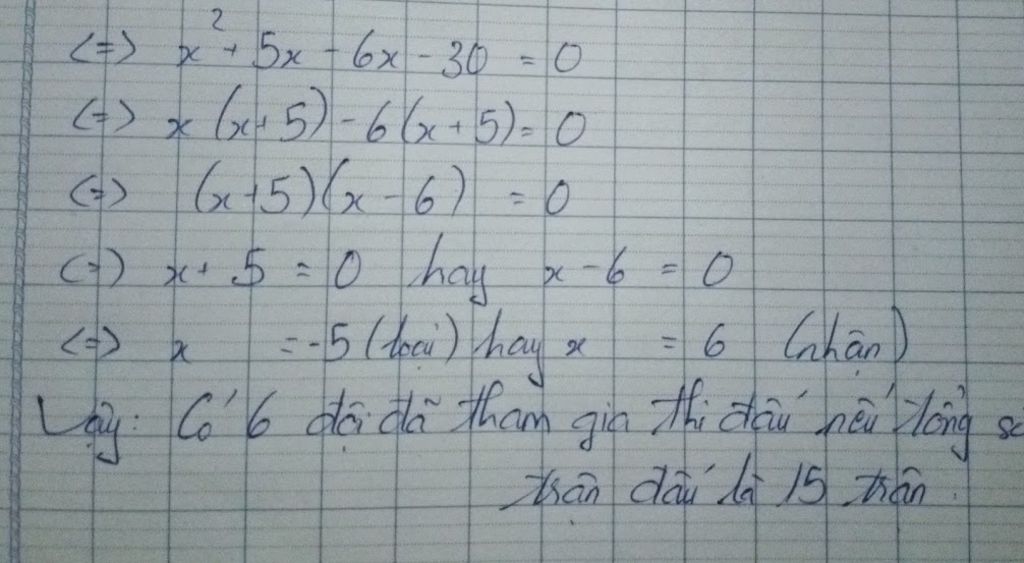 <=> x² + 5x - 6x - 30 = 0
<=> x (x + 5) - 6 (x + 5) = 0
<=> (x + 5) (x - 6) = 0
<=> x + 5 = 0 hay x - 6 = 0
<=> x = -5 (loại) hay x = 6 (nhận)
Vậy: Có 6 đội đã tham gia thi đấu nếu tổng số
trận đấu là 15 trận.